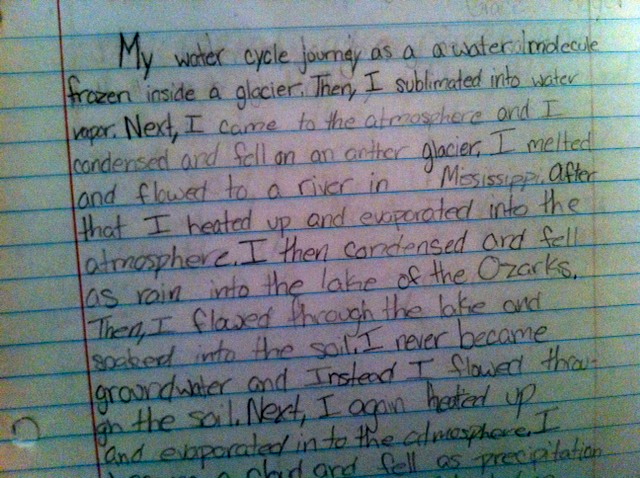 My water cycle journey as a a water molecule
frozen inside a glacier. Then, I sublimated into water
vapor. Next, I came to the atmosphere and I
condensed and fell on an anther glacier. I melted
and flowed to a river in Mississippi. After
that I heated up and evaporated into the
atmosphere. I then condensed and fell
as rain into the lake of the Ozarks.
Then, I flowed through the lake and
soaked into the soil. I never became
groundwater and Instead I flowed throu-
gh the soil. Next, I again heated up
and evaporated in to the atmosphere. I
and fell as precipitation